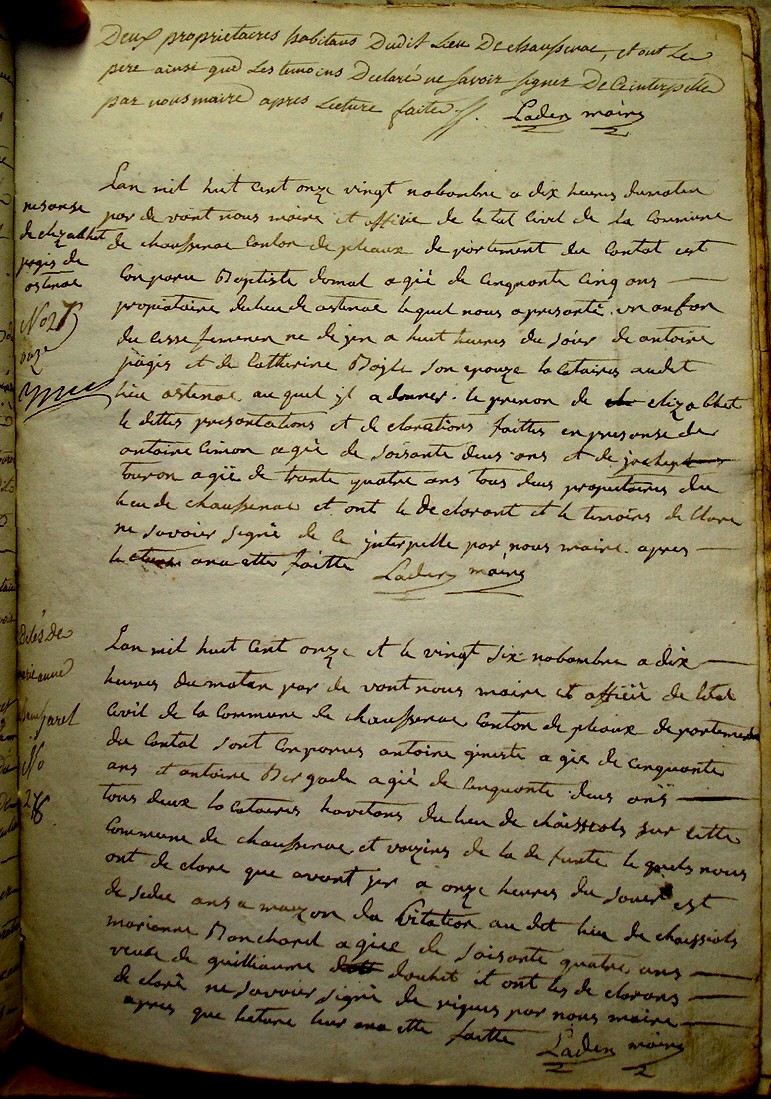 Deux proprietaires habitans Dudit Lieu De chaussenac, et ont Le
pere ainsi que Les temoins Declaré ne savoir signer De Ce interpellé
par nous maire apres Lecture faite
Laden maire
nesanse
de elizabhet
pagis de
ostenac
No 27
Lan mil huit cent onze vingt nobambre a dix heures du matin
par de vant nous maire et offiié de le tat Civil de La Commune
de chaussenac Canton de pleaux de partement du Cantal est
Conparu Baptiste domal agié de Cinquante Cinq ans
propiataire du lieu de ostenac lequel nous a presanté un anfan
du cesse femenen ne de jer a huit heures du soier de antoine
pagis et de Catherine son epouze locataires audit
lieu ostenac auquel jl a donner le prenon de elizabhet
le dittes presantations et de clarations faittes en presanse de
antoine Cimon agié de soisante deus ans et de
touron agié de trante quatre ans tous deus propietaires du
lieu de chaussenac et ont le de clarant et le temoins de clare
ne savoier signé de Ce interpelle par nous maire apres
ana ette faitte Laden maire
Desés de
marianne
No
28
Lan mil huit cent onze et le vingt six nobambre a dix
heures du matan par de vant nous maire et offiié de letat
Civil de la Commune de chaussenac Canton de pleaux de partement
du Cantal sont Conparus antoine gineste agié de Cinquante
ans et antoine Bergade agié de Cinquante deus ans
tous deux locataires havitans du lieu de chaissiols sur cette
Commune de chaussenac et voizins de la de funte le quels nous
ont de clare que avant jer a onze heures du soier est
de sedee ans a maizon da bitation au dit lieu de chaissiols
marianne agiee de soisante quatre ans
veuse de guilliaume douhet et ont les de clarans
de claré ne savoier signé de riquis par nous maire
apres que lecture leur ana ette faitte Laden maire